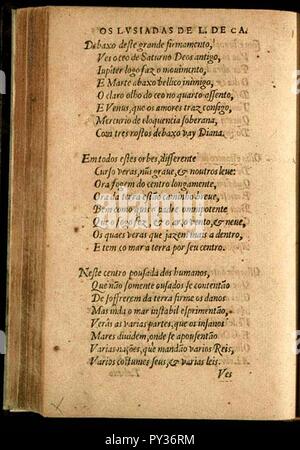 OS LVSIADAS DE L. DE CA.
Debaxo deste grande firmamento,
Ves o ceo de Saturno Deos antigo,
Iupiter logo faz o mouimento,
E Marte abaxo bellico inimigo,
O claro olho do ceo no quarto assento,
E Venus, que os amores traz consigo,
Mercurio de eloquencia soberana,
Com tres rostos debaxo vay Diana.
Em todos estes orbes, differente
Curso veras, nũs graue, & noutros leue:
Ora fogem do centro longamente,
Ora da terra estão caminho breue,
Bem como quis o padre omnipotente
Que o fogo fez, & o ar, o vento, & neue,
Os quaes veras que jazem mais a dentro,
E tem co mar a terra por seu centro.
Neste centro pousada dos humanos,
Que não somente ousados se contentão
De soffrerem da terra firme os danos
Mas inda o mar instabil esprimentão,
Verás as varias partes, que os insanos
Mares diuidem, onde se apousentão
Varias nações, que mandão varios Reis,
Varios costumes seus & varias leis.
Ves
alamy stock photo
alamy
Image ID: PY36RM
www.alamy.com